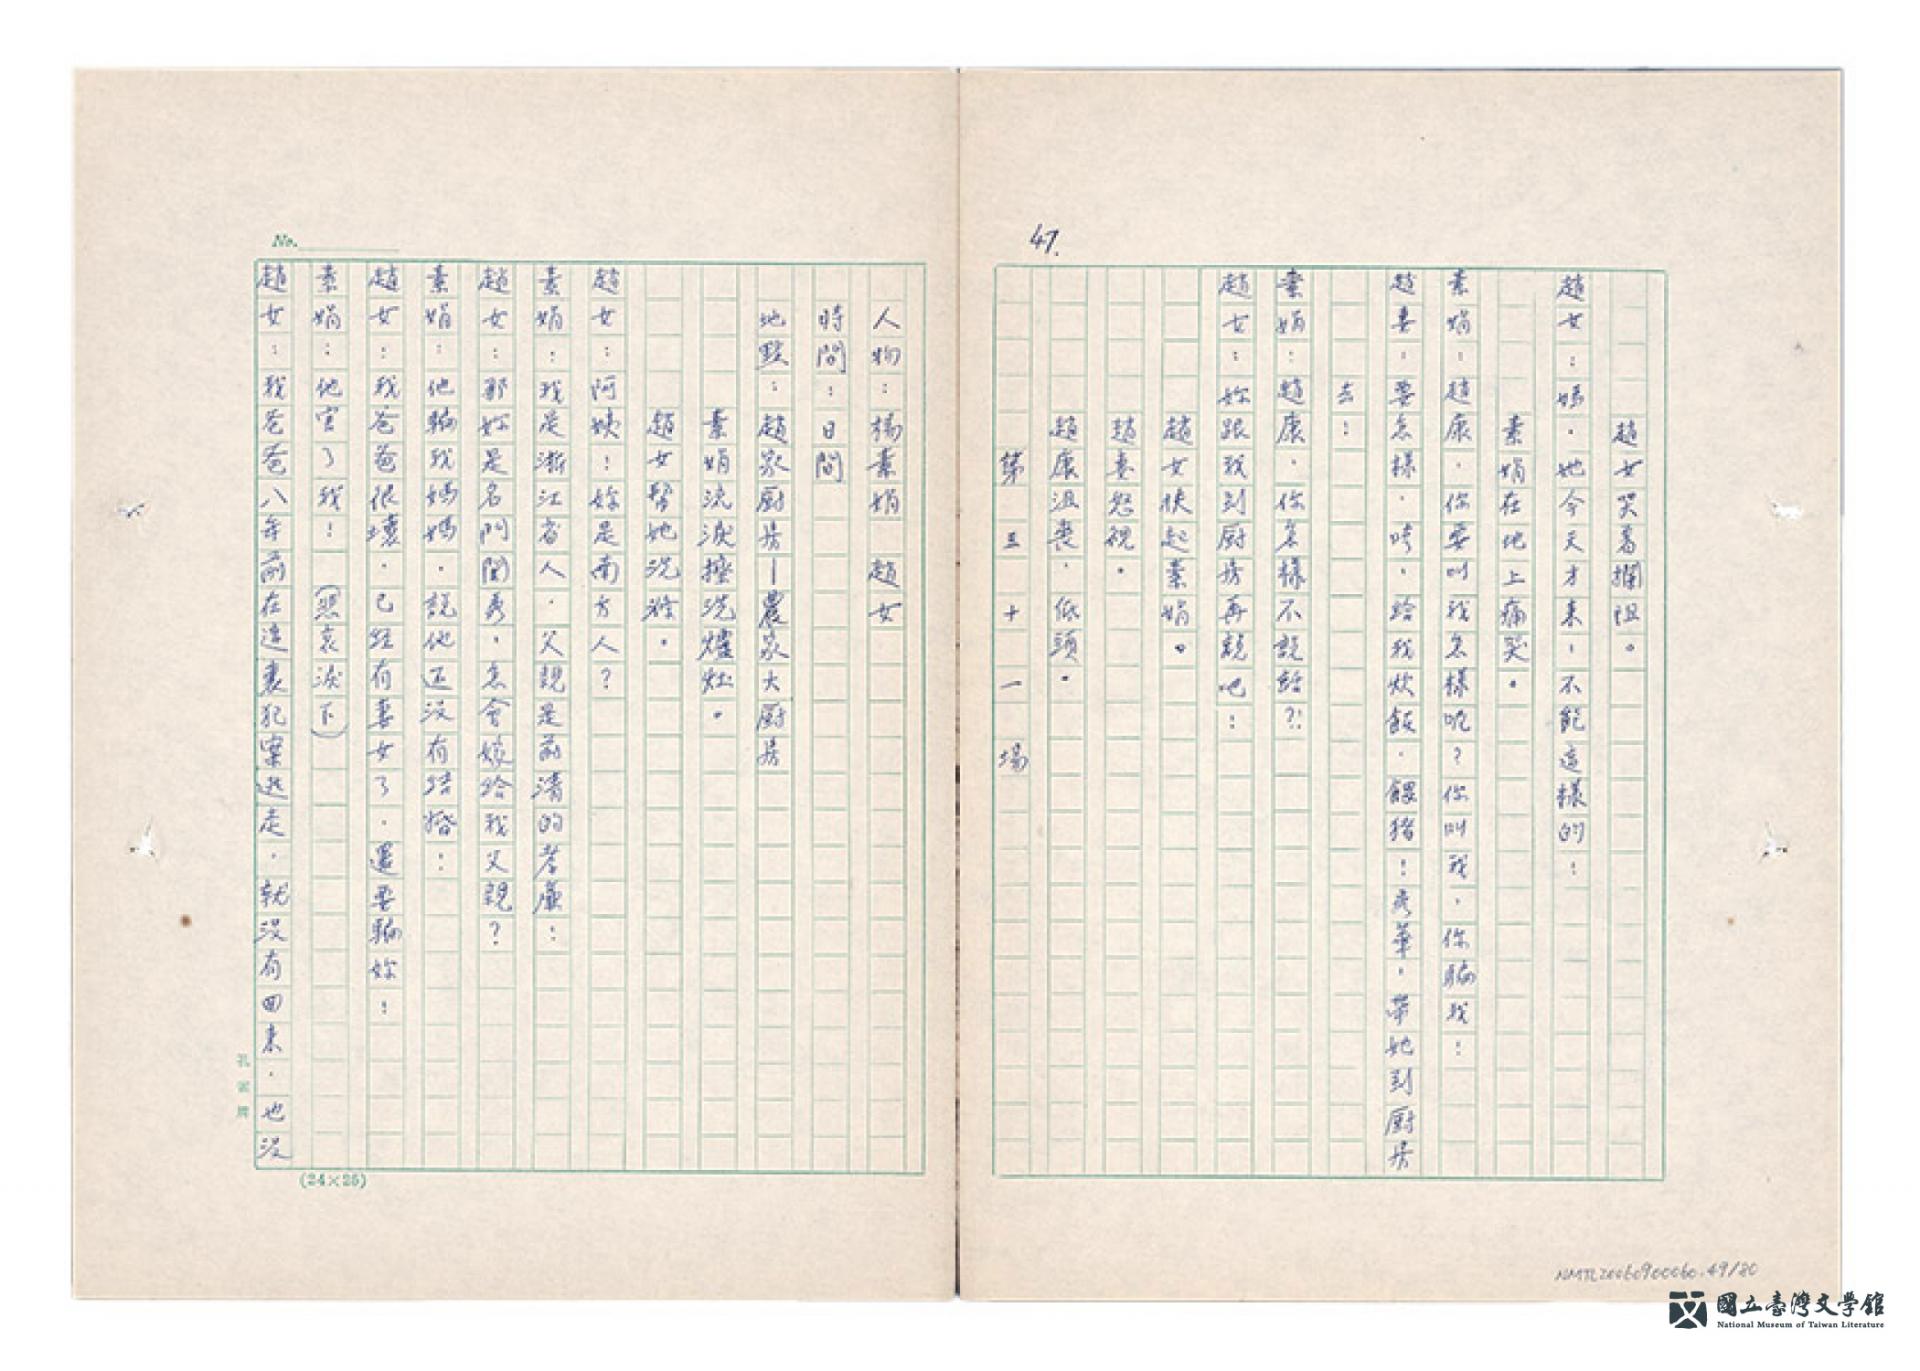 47.
趙女哭着攔阻。
趙女：媽，她今天才來，不能這樣的！
素娟在地上痛哭。
素娟：趙康，你要叫我怎樣呢？你叫我，你騙我！
趙妻：要怎樣，哼，給我炊飯，餵豬！秀華，帶她到厨房
去！
素娟：趙康，你怎樣不說話？！
趙女：妳跟我到厨房再說吧！
趙女扶起素娟。
趙妻怒視。
趙康沮喪，低頭。
第三十一場
人物：楊素娟　趙女
時間：日間
地點：趙家厨房—農家大厨房
素娟流淚擦洗爐灶。
趙女幫她洗滌。
趙女：阿姨！妳是南方人？
素娟：我是浙江省人，父親是前清的孝廉！
趙女：那妳是名門閨秀，怎會嫁給我父親？
素娟：他騙我媽媽，說他还没有結婚！
趙女：我爸爸很壞，已經有妻女了，還要騙妳！
素娟：他害了我！（悲哀淚下）
趙女：我爸爸八年前在這裏犯案逃走，就没有回來，也没
No.
孔雀牌
(24×25)
NMTL20060900060.49/80
國立臺灣文學館
National Museum of Taiwan Literature